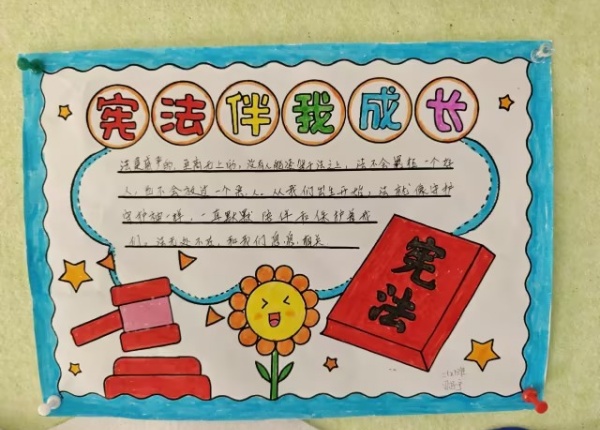 宪法伴我成长
法是庄严的，至高无上的，没有人能凌驾于法之上，法不会冤枉一个好
人，也不会放过一个坏人。从我们出生开始，法就像守护
守护神一样，一直默默陪伴和保护着我
们，法无处不在，和我们息息相关
宪法